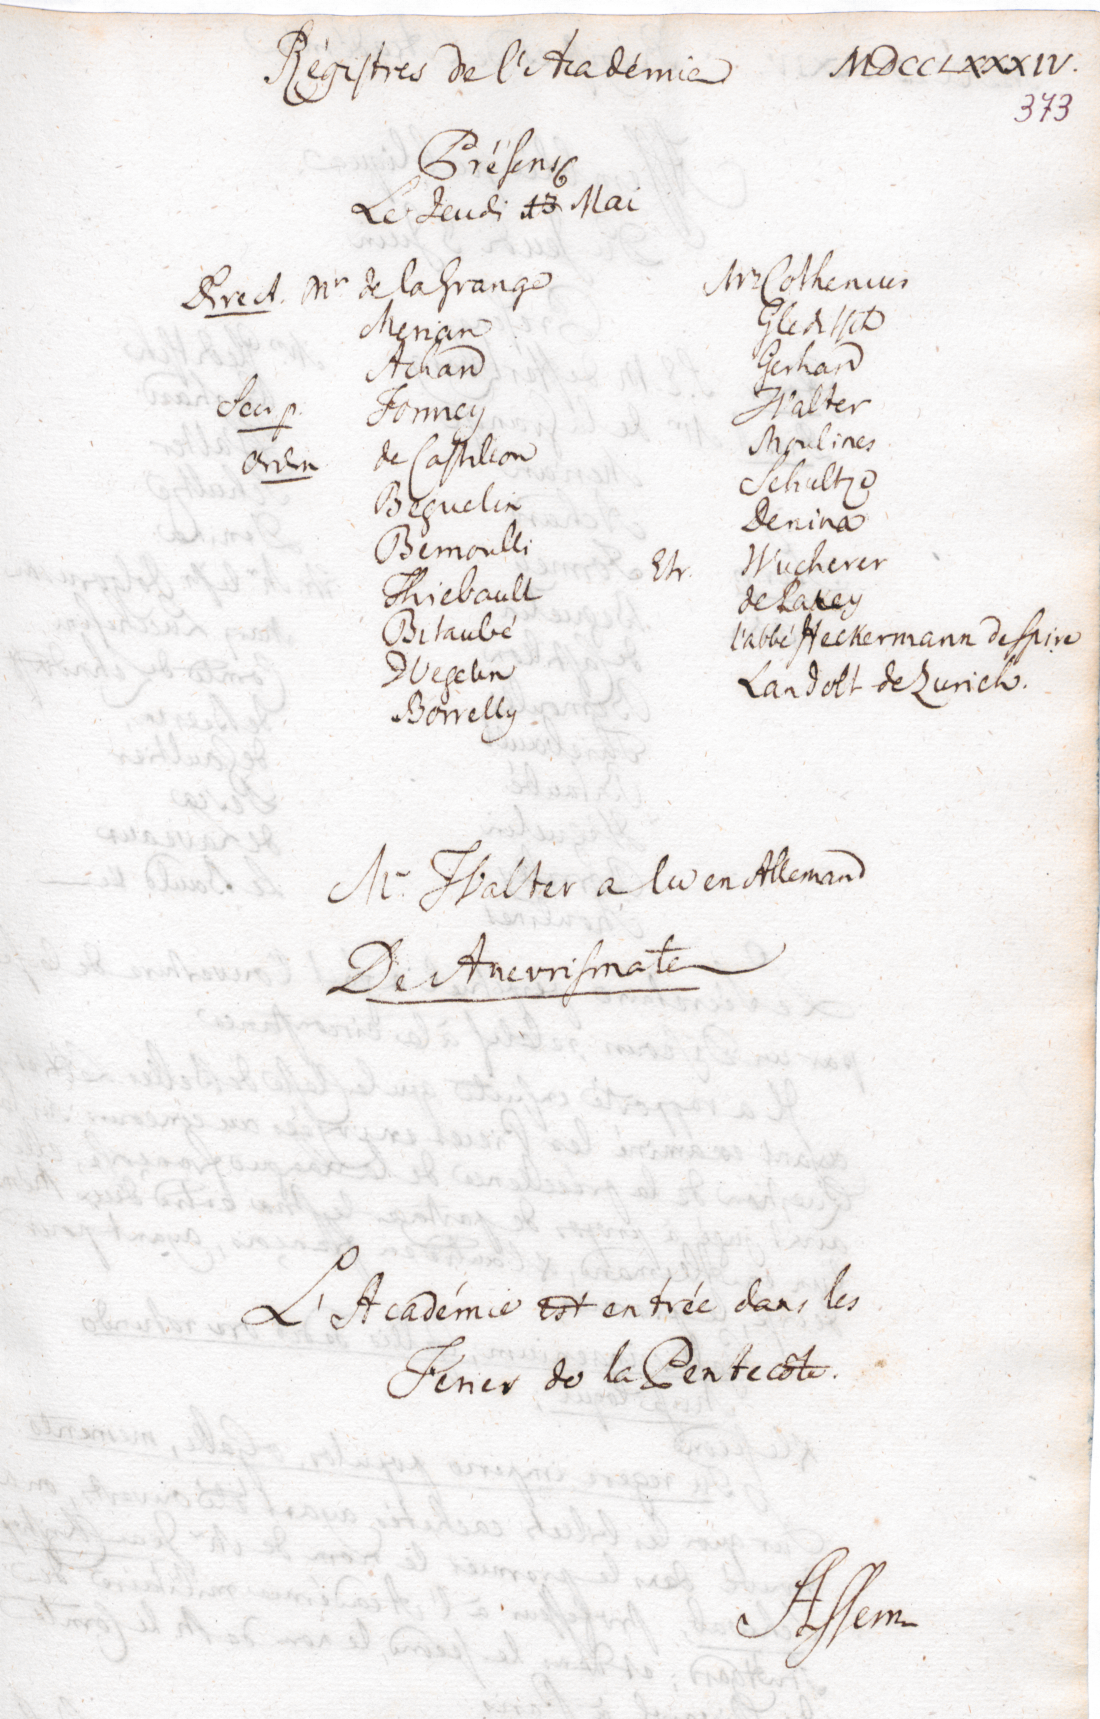 Régistres de l'Académie
MDCCLXXXIV.
373
Présens
Le Jeudi 13 Mai
Direct. Mr de la Grange
Merian
Achard
Secr. p. Formey
Orden de Castillon
Beguelin
Bernoulli
Thiebault
Bitaubé
Wegelin
Borrelly
Mrs Cothenius
Gleditsch
Gerhard
Walter
Moulines
Schultze
Denina
Etr. Wucherer
de Laxey
l'abbé Heckermann de Spire
Landolt de Zurich.
Mr. Walter a lu en Allemand
De Anevrismate
L'Académie est entrée dans les
Feries de la Pentecôte.
Assem